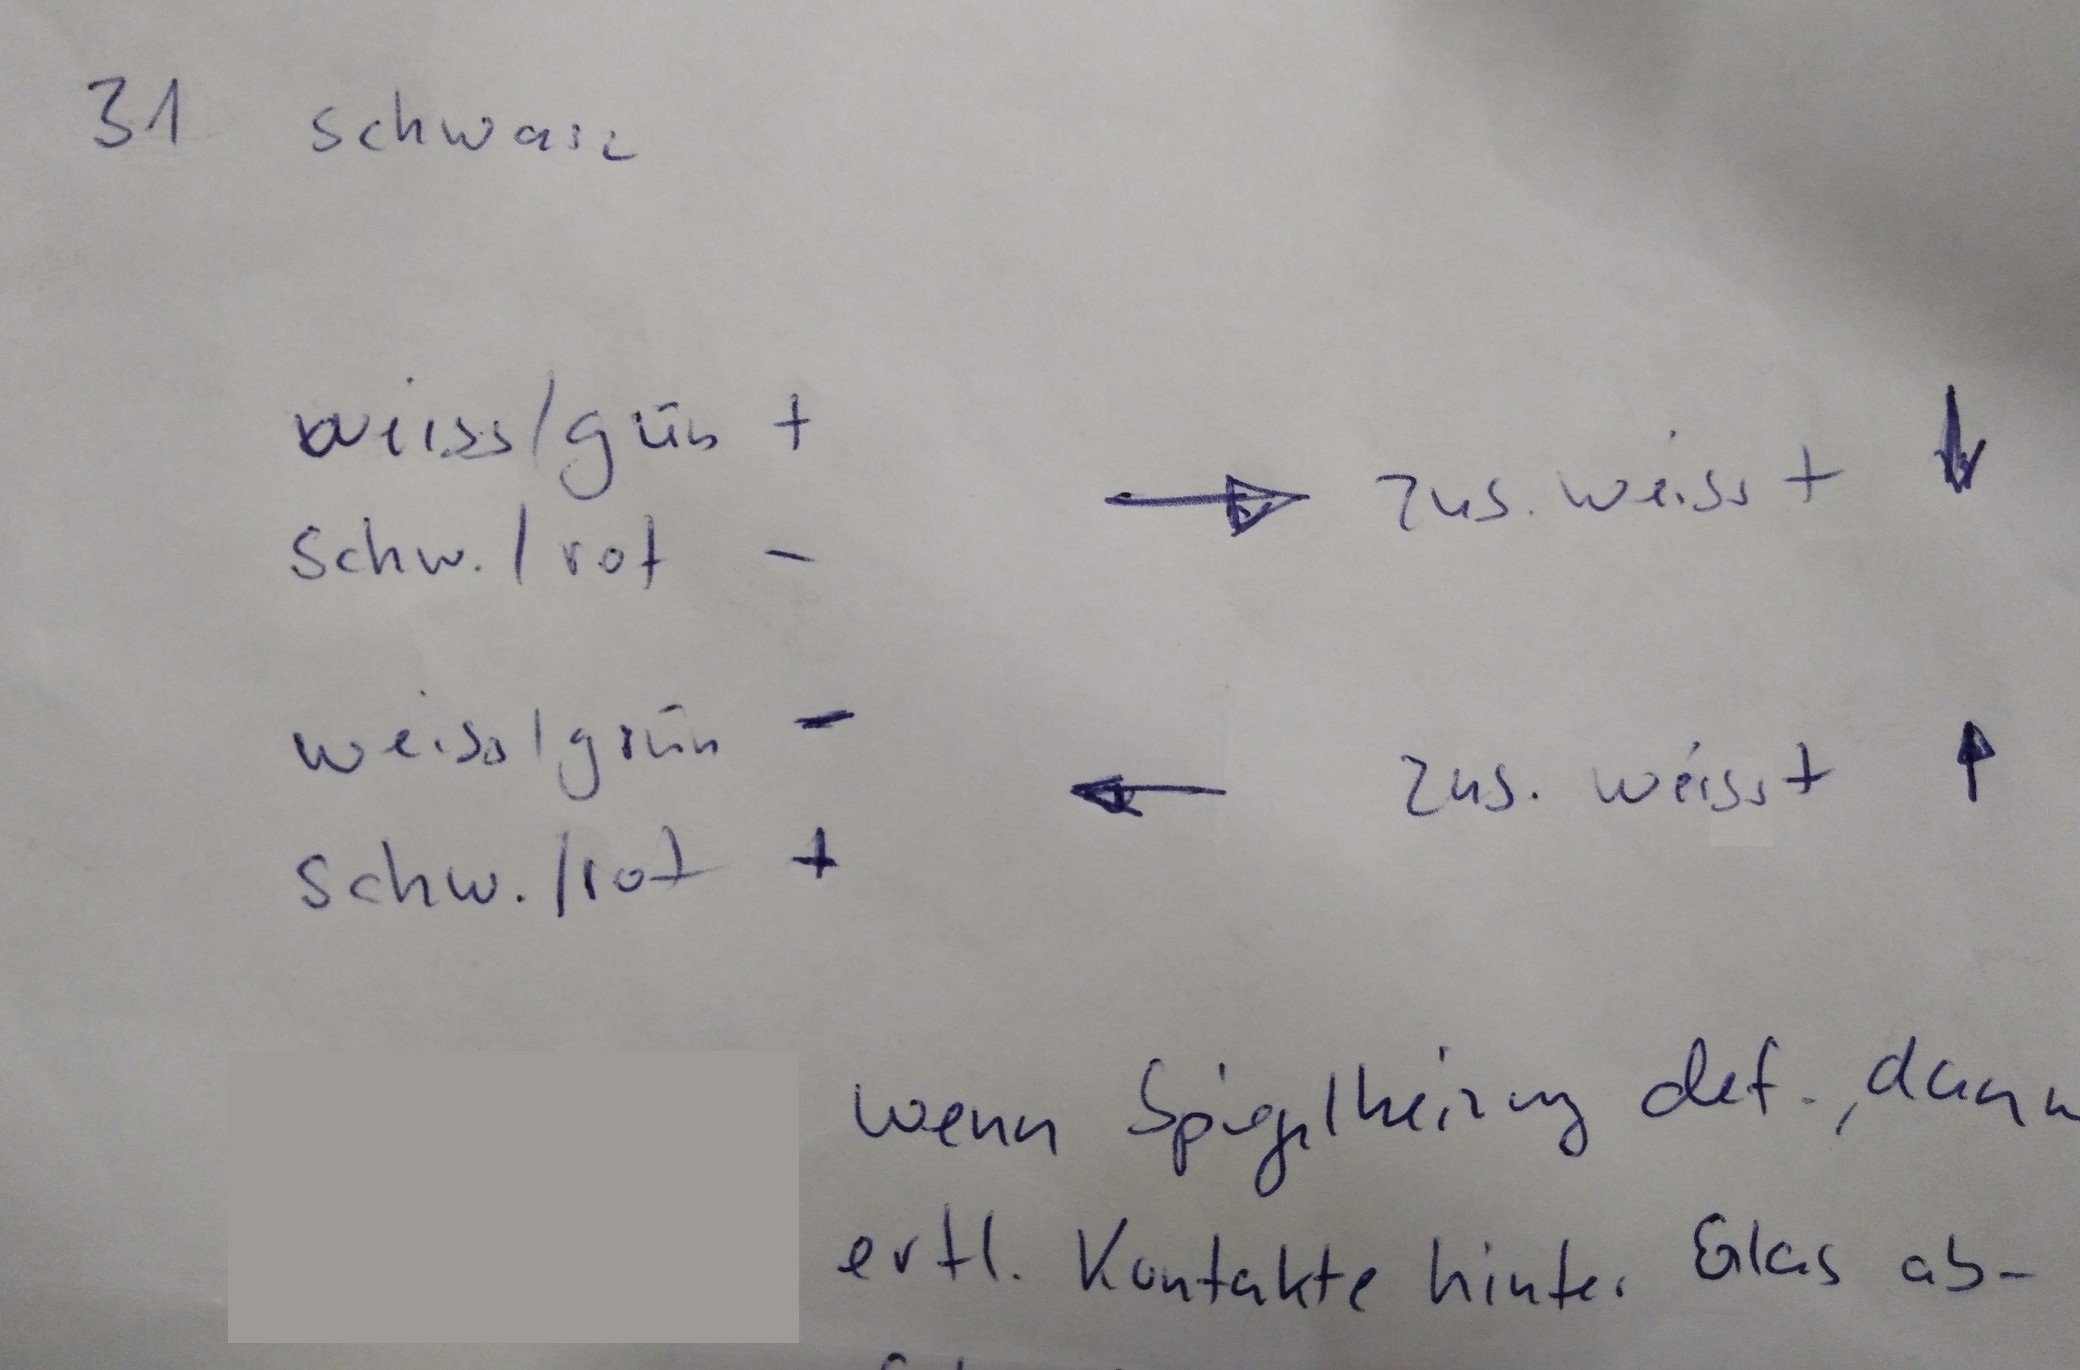 31 schwarz
weiss/grün +
→ zus. weiss + ↓
schw./rot -
weiss/grün -
← zus. weiss + ↑
schw./rot +
wenn Spiegelheizung def., dann
evtl. Kontakte hinter Glas ab-